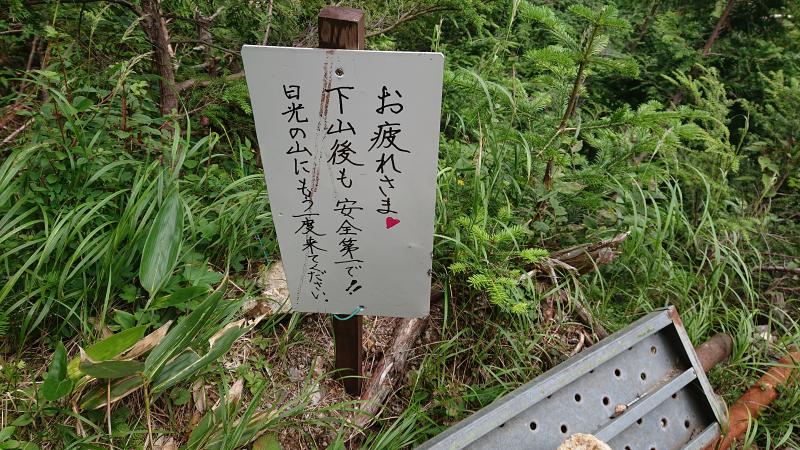 お疲れさま♥
下山後も安全第一で!!
日光の山にもう一度来てください。